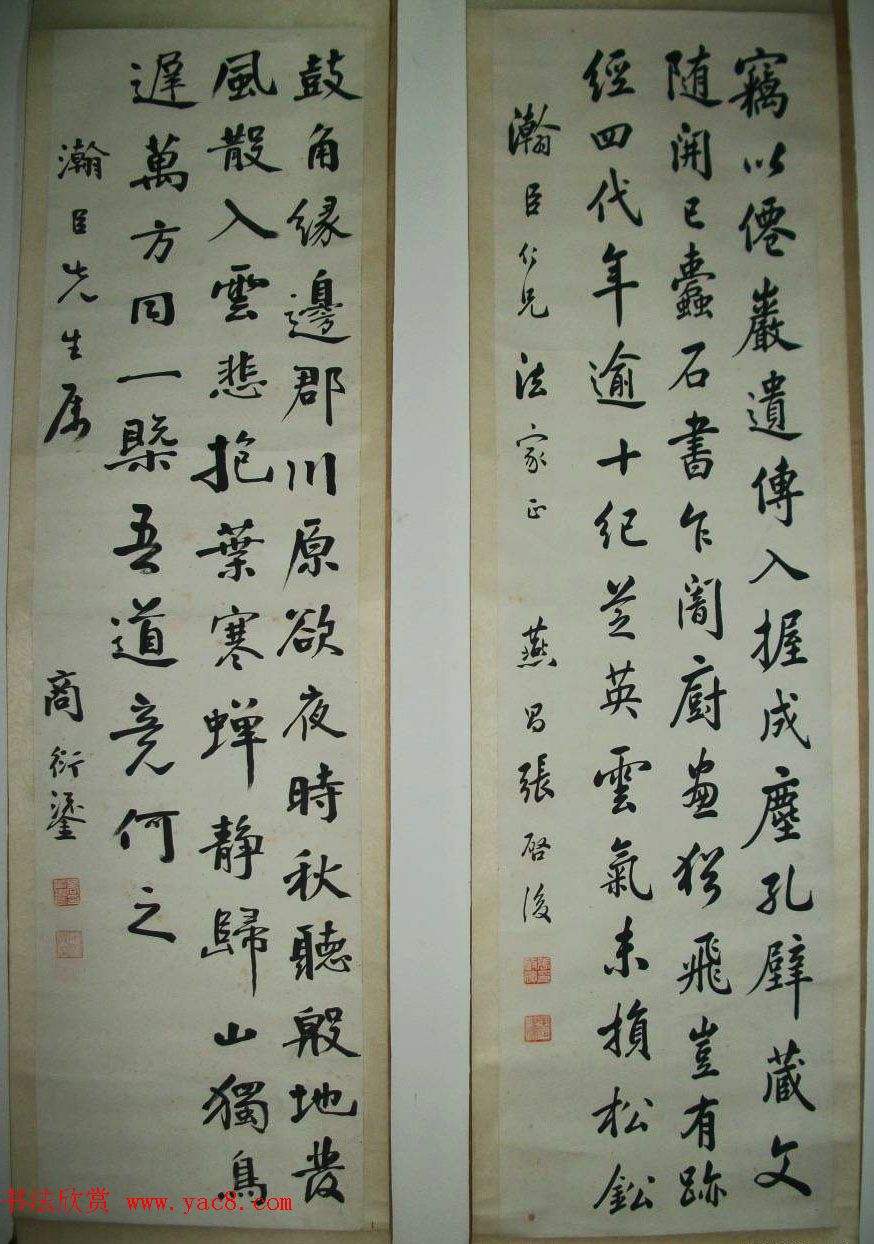 竊以僊巖遺傳入握成塵孔壁蔵文
随開已蠹石書乍闇廚畫猶飛豈有跡
經四代年逾十紀芝英雲氣未損松鈆
瀚臣仁兄法家正
燕昌張啓後
鼓角緣邊郡川原欲夜時秋聽殷地發
風散入雲悲抱葉寒蟬靜歸山獨鳥
遲萬方同一槩吾道竟何之
瀚臣先生属
商衍鎏
书法欣赏 www.yac8.com